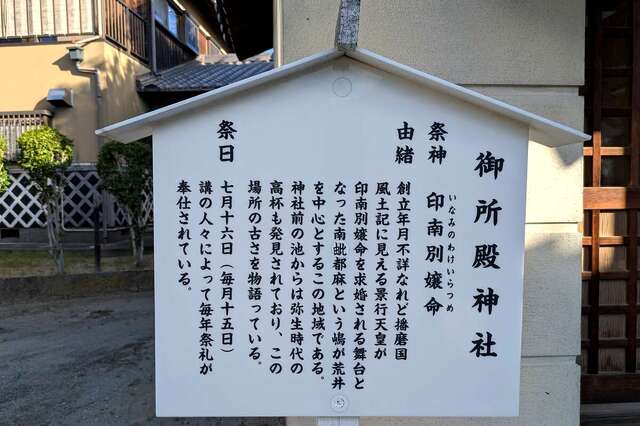 御所殿神社
祭神 印南別嬢命
いなみのわけいらつめ
由緒
創立年月不詳なれど播磨国
風土記に見える景行天皇が
印南別嬢命を求婚される舞台と
なった南毗都麻という嶋が荒井
を中心とするこの地域である。
神社前の池からは弥生時代の
高杯も発見されており、この
場所の古さを物語っている。
祭日
七月十六日(毎月十五日)
講の人々によって毎年祭礼が
奉仕されている。